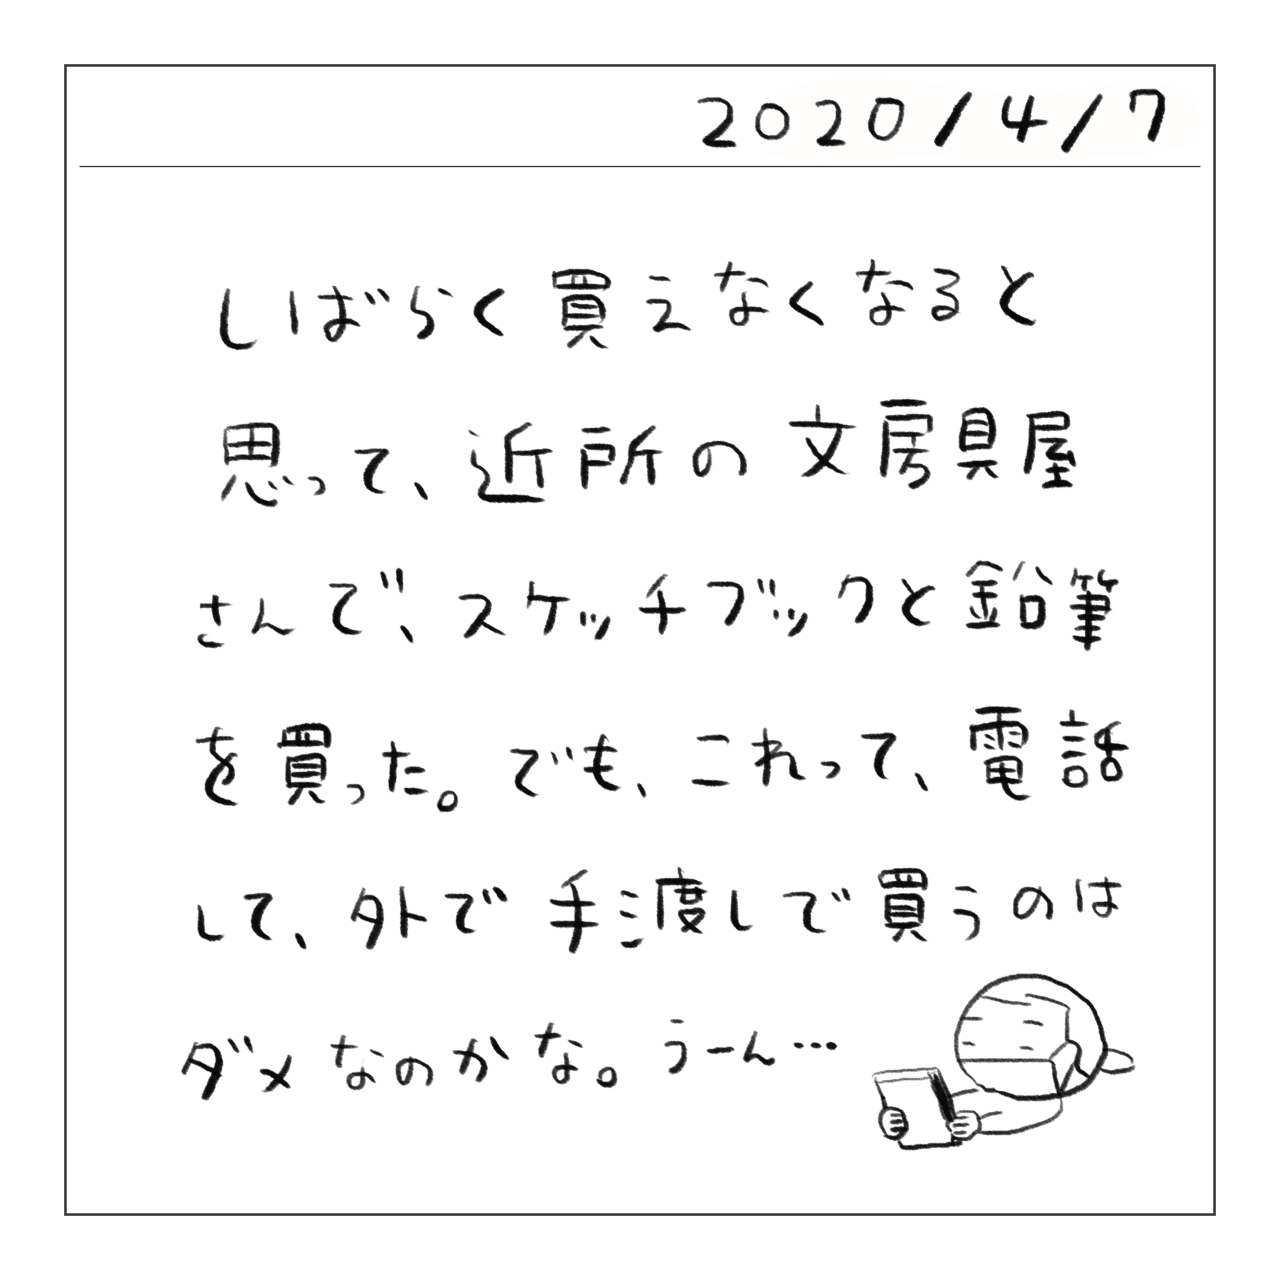 2020/4/7
しばらく買えなくなると
思って、近所の文房具屋
さんで、スケッチブックと鉛筆
を買った。でも、これって、電話
して、外で手渡しで買うのは
ダメなのかな。うーん…